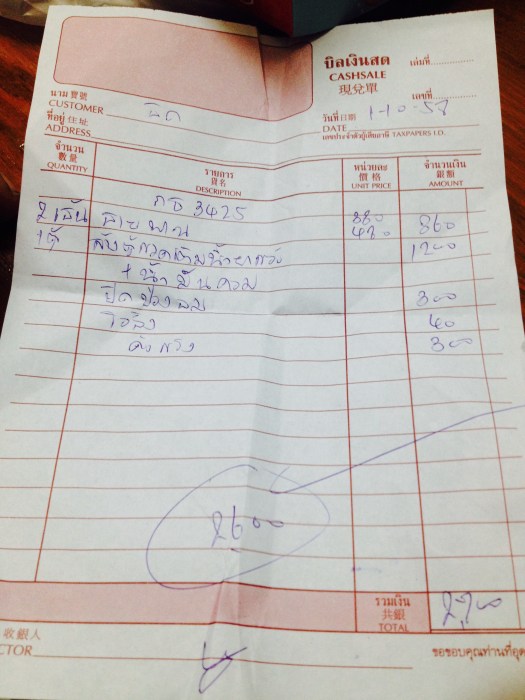 บิลเงินสด
เล่มที่
CASHSALE
現兌單
เลขที่
นาม 寶號
CUSTOMER
วันที่ 日期 1-10-57
DATE
ที่อยู่ 住址
ADDRESS
เลขประจำตัวผู้เสียภาษี TAXPAPERS I.D.
จำนวน
數量
QUANTITY
รายการ
貨名
DESCRIPTION
หน่วยละ
價格
UNIT PRICE
จำนวนเงิน
銀額
AMOUNT
3425
2 เส้น สายพาน 860
1 ตู้ 1200
+ น้ำ
ปิด 300
โอริง 40
ค่าแรง 300
2600
รวมเงิน
共銀
TOTAL
2,700
收銀人
CTOR
ขอขอบคุณท่านที่อุด